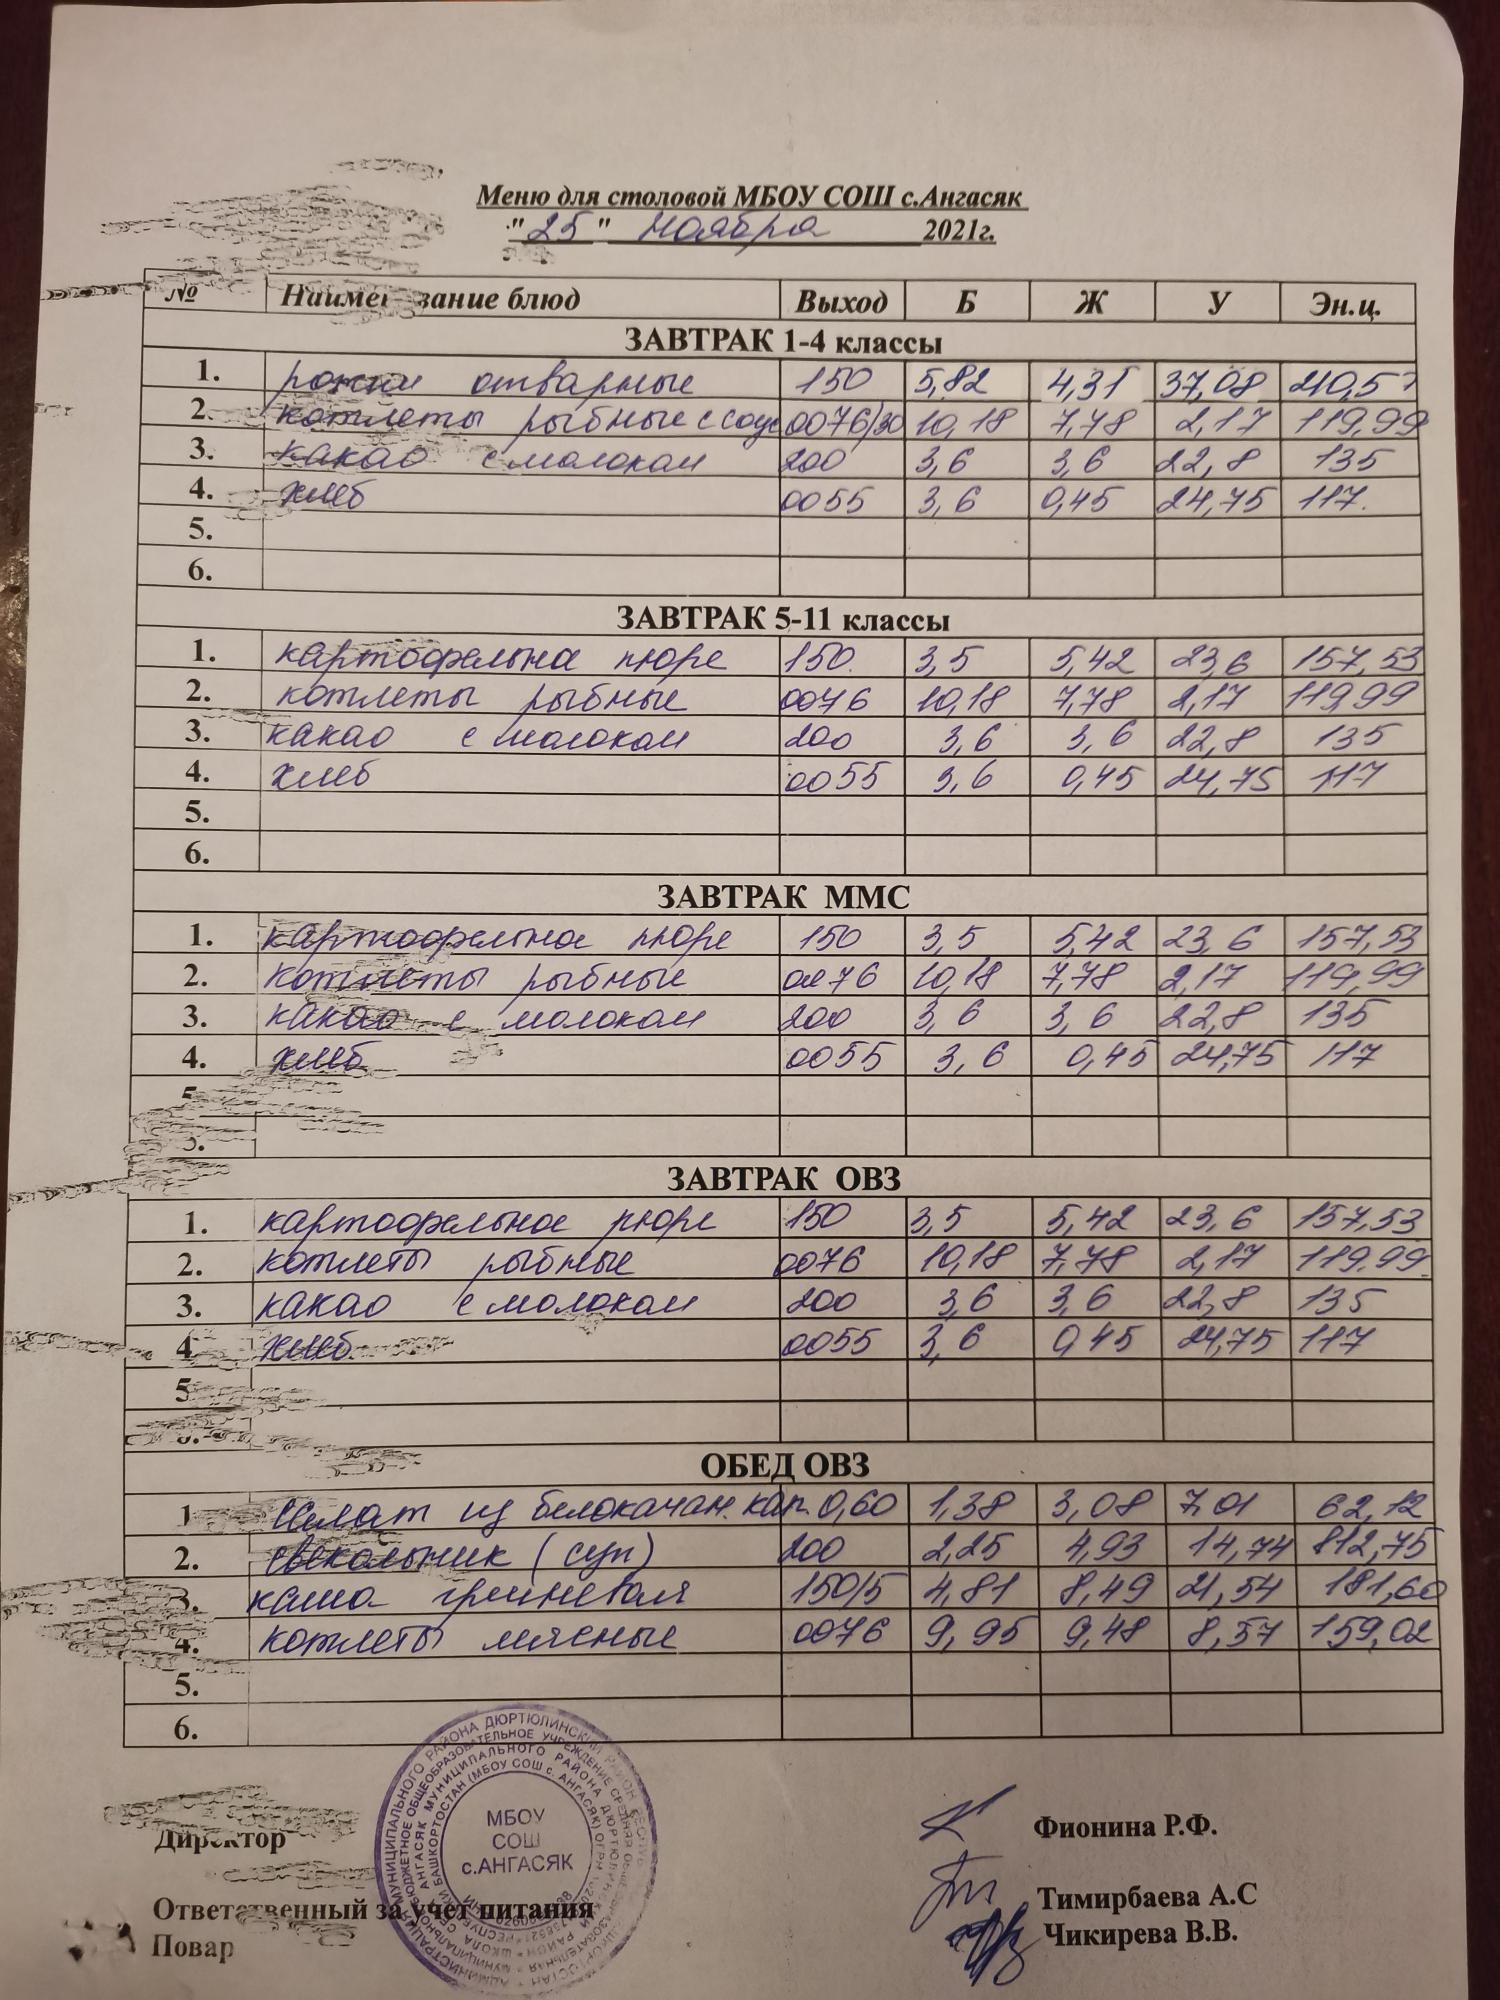 Меню для столовой МБОУ СОШ с.Ангасяк
"25" Ноября 2021г.
№ Наименование блюд Выход Б Ж У Эн.ц.
ЗАВТРАК 1-4 классы
1. рожки отварные 150 5,82 4,31 37,08 210,57
2. котлеты рыбные с соус 0076/30 10,18 7,78 2,17 119,99
3. какао с молоком 200 3,6 3,6 22,8 135
4. хлеб 0055 3,6 0,45 24,75 117.
5.
6.
ЗАВТРАК 5-11 классы
1. картофельное пюре 150 3,5 5,42 23,6 157,53
2. котлеты рыбные 0076 10,18 7,78 2,17 119,99
3. какао с молоком 200 3,6 3,6 22,8 135
4. хлеб 0055 3,6 0,45 24,75 117
5.
6.
ЗАВТРАК ММС
1. картофельное пюре 150 3,5 5,42 23,6 157,53
2. котлеты рыбные 0076 10,18 7,78 2,17 119,99
3. какао с молоком 200 3,6 3,6 22,8 135
4. хлеб 0055 3,6 0,45 24,75 117
5
ЗАВТРАК ОВЗ
1. картофельное пюре 150 3,5 5,42 23,6 157,53
2. котлеты рыбные 0076 10,18 7,78 2,17 119,99
3. какао с молоком 200 3,6 3,6 22,8 135
4 хлеб 0055 3,6 0,45 24,75 117
5
ОБЕД ОВЗ
1 Салат из белокачан. кап. 0,60 1,38 3,08 7,01 62,12
2. свекольник (суп) 200 2,25 4,93 14,74 812,75
3. каша гречневая 150/5 4,81 8,49 21,54 181,60
4. котлеты мясные 0076 9,95 9,48 8,57 159,02
5.
6.
МБОУ
СОШ
с.АНГАСЯК
Директор Фионина Р.Ф.
Ответственный за учет питания Тимирбаева А.С
Повар Чикирева В.В.